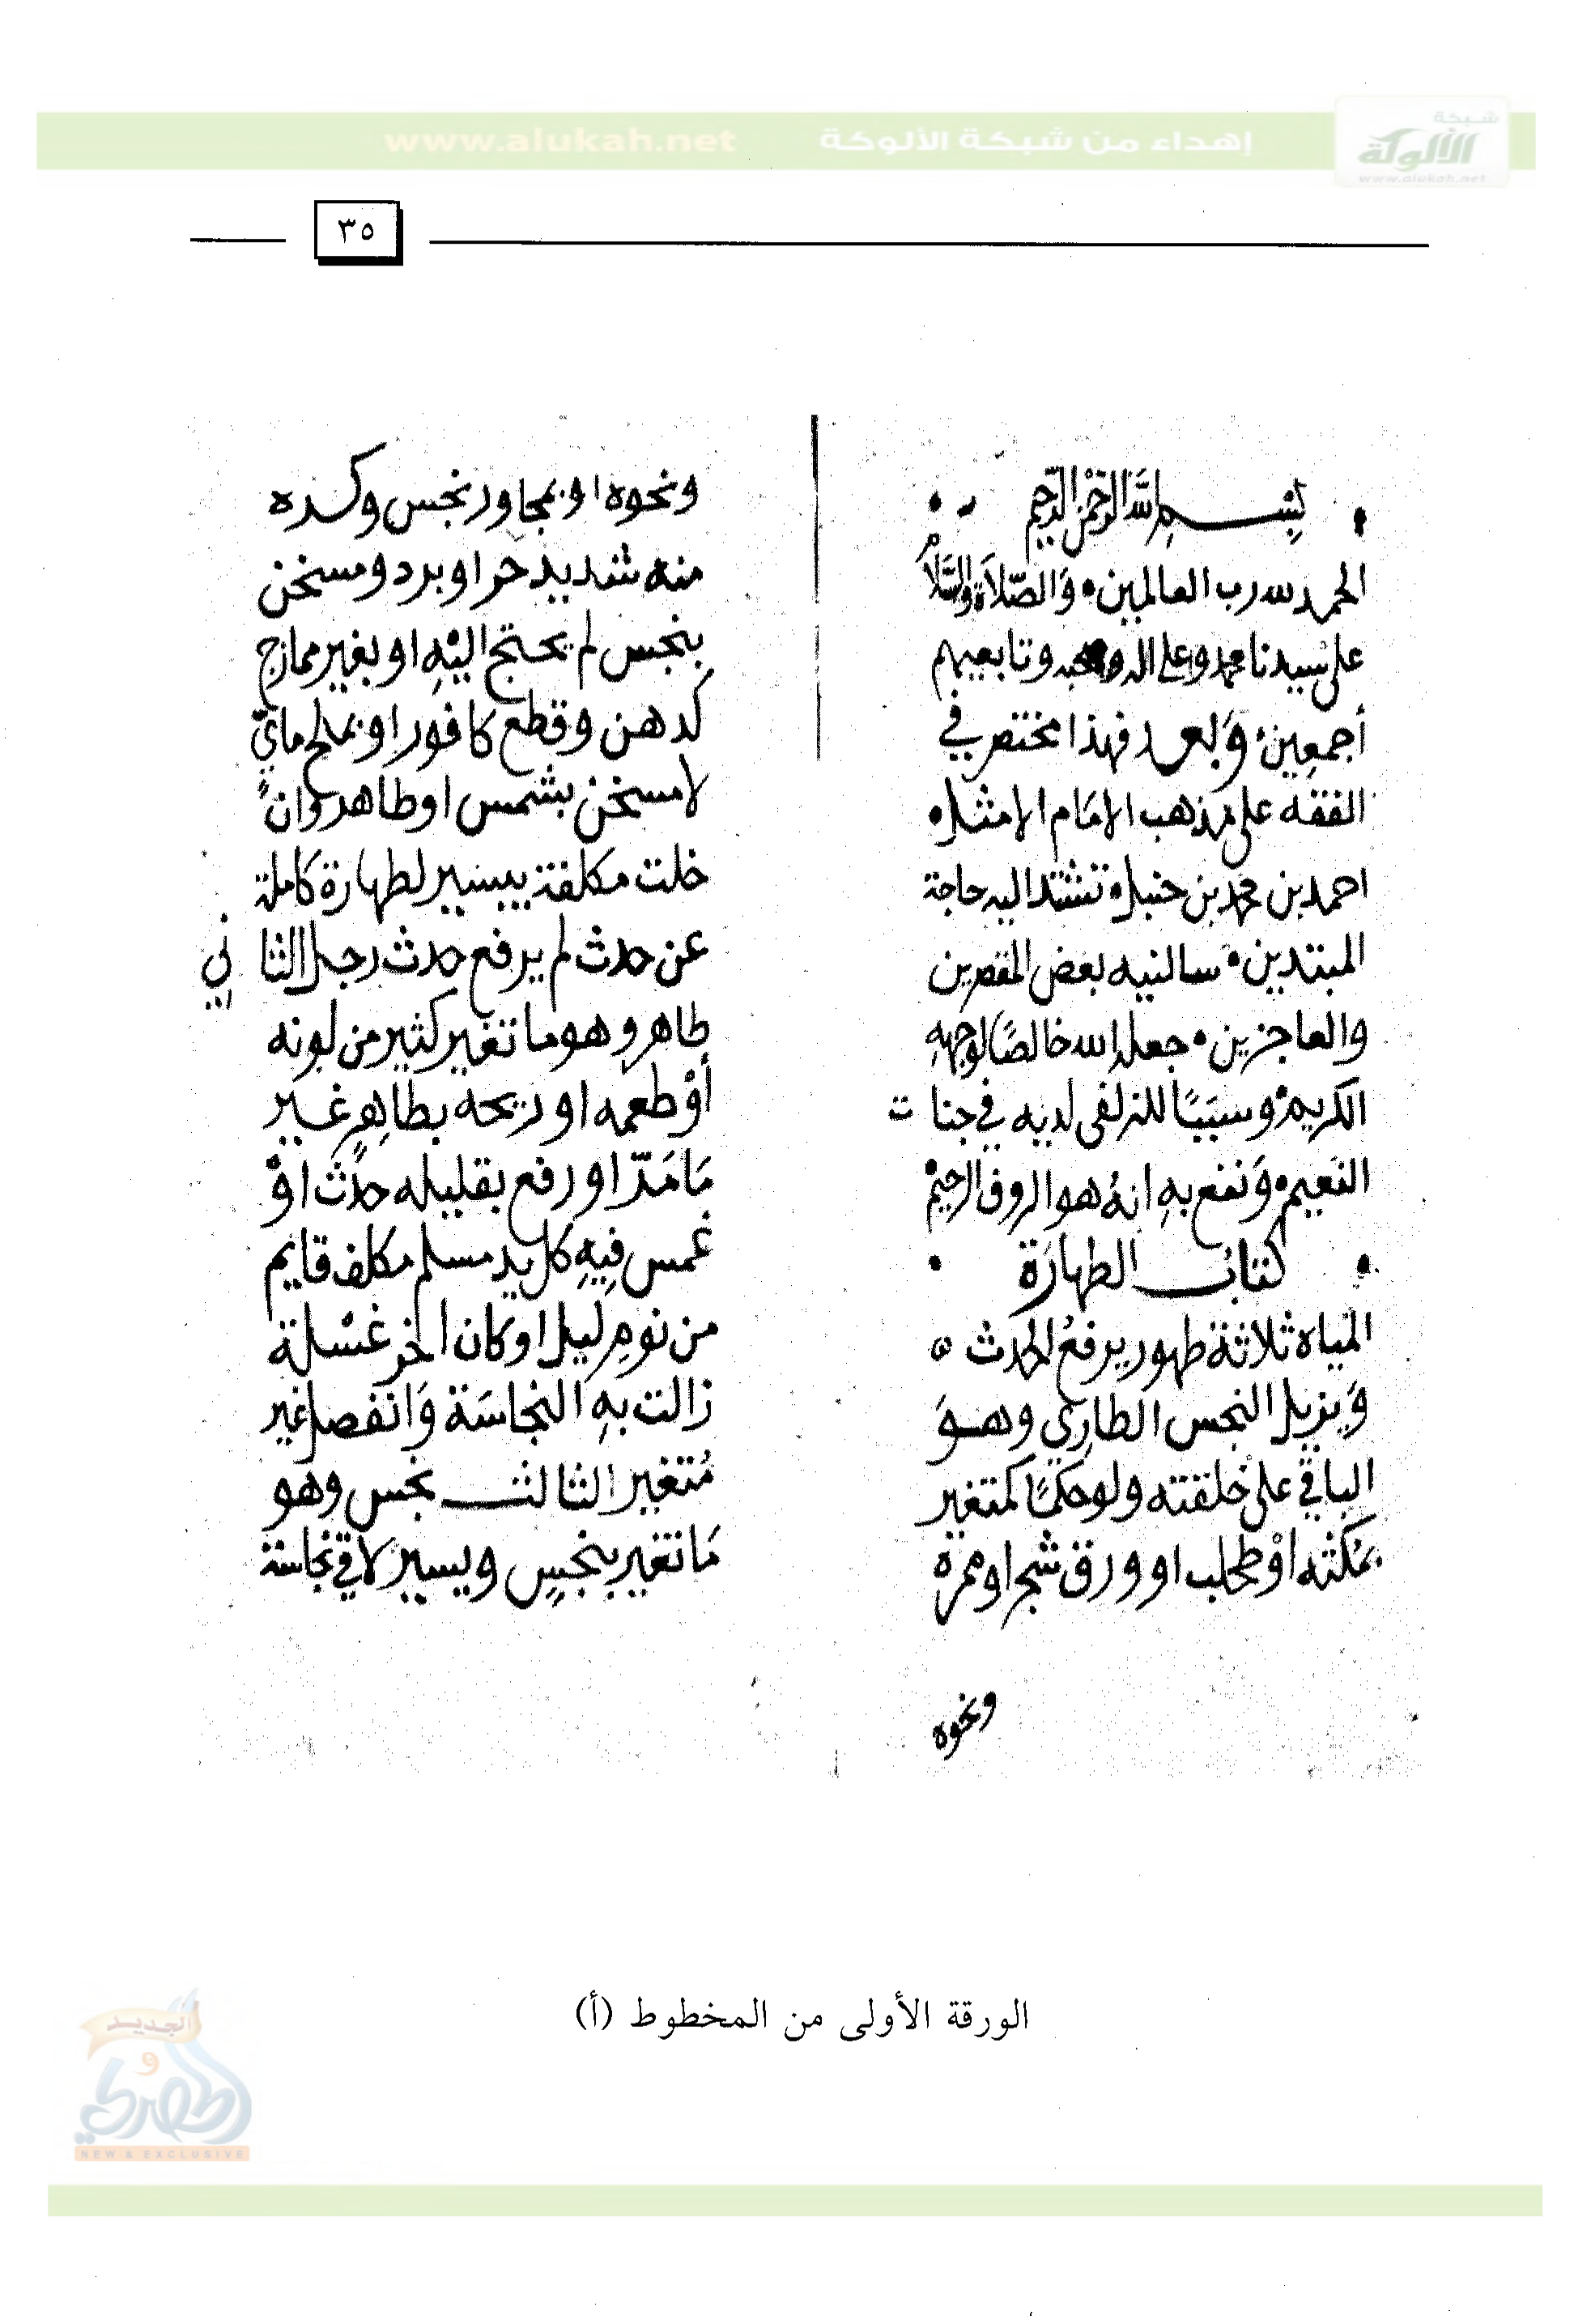 شبكة
الألوكة
www.alukah.net
إهداء من شبكة الألوكة www.alukah.net
٣٥
بِسْمِ اللَّهِ الرَّحْمَنِ الرَّحِيمِ
الحمد لله رب العالمين وَالصّلَاة وَالسَّلَامُ
على سيدنا محمد وعلى اله وصحبه وتابعيهم
أجمعين وَبعد فهذا مختصر في
الفقه على مذهب الامَام الامثل
احمد بن محمد بن حنبل تشتد اليه حاجة
المبتدين سالنيه بعض المقصرين
والعاجزين جعله الله خالصًا لوجههِ
الكريم وسبَبًا للزلفى لديه في جنات
النعيم وَنفع بهِ انهُ هو الروف الرحيم
كتاب الطهارَة
المياه ثلاثة طهور يرفعُ الحدث
وَيزيل النجس الطارِي وهوَ
الباقي على خلقته ولو حكمًا كمتغير
بمُكثه اوْ طحلب او ورق شجر او ممره
ونحوه
ونحوه او بمجاور نجس وكره
منه شديد حر او برد ومسخن
بِنجس لم يحتج اليْهِ او بغير ممازج
كدهن وقطع كافور او بملح مائيّ
لا مسخن بشمس او طاهر وان
خلت مكلفة بيسير لطهارة كاملة
عن حدث لم يرفع حدث رجل الثاني
طاهر وهو ما تغير كثير من لونه
أوْ طعمه او ريحه بطاهِرٍ غير
مَا مَرّ او رفع بقليله حدَث اوْ
غمس فِيهِ كل يد مسلم مكلف قايم
من نومِ ليل او كان اخر غسْلة
زالت بهِ النجاسَة وَانفصل غير
مُتغير الثالث نجس وهو
مَا تغير بنجسٍ ويسير لاقى نجاسة
الورقة الأولى من المخطوط (أ)
الجديد
و
الحصري
NEW & EXCLUSIVE